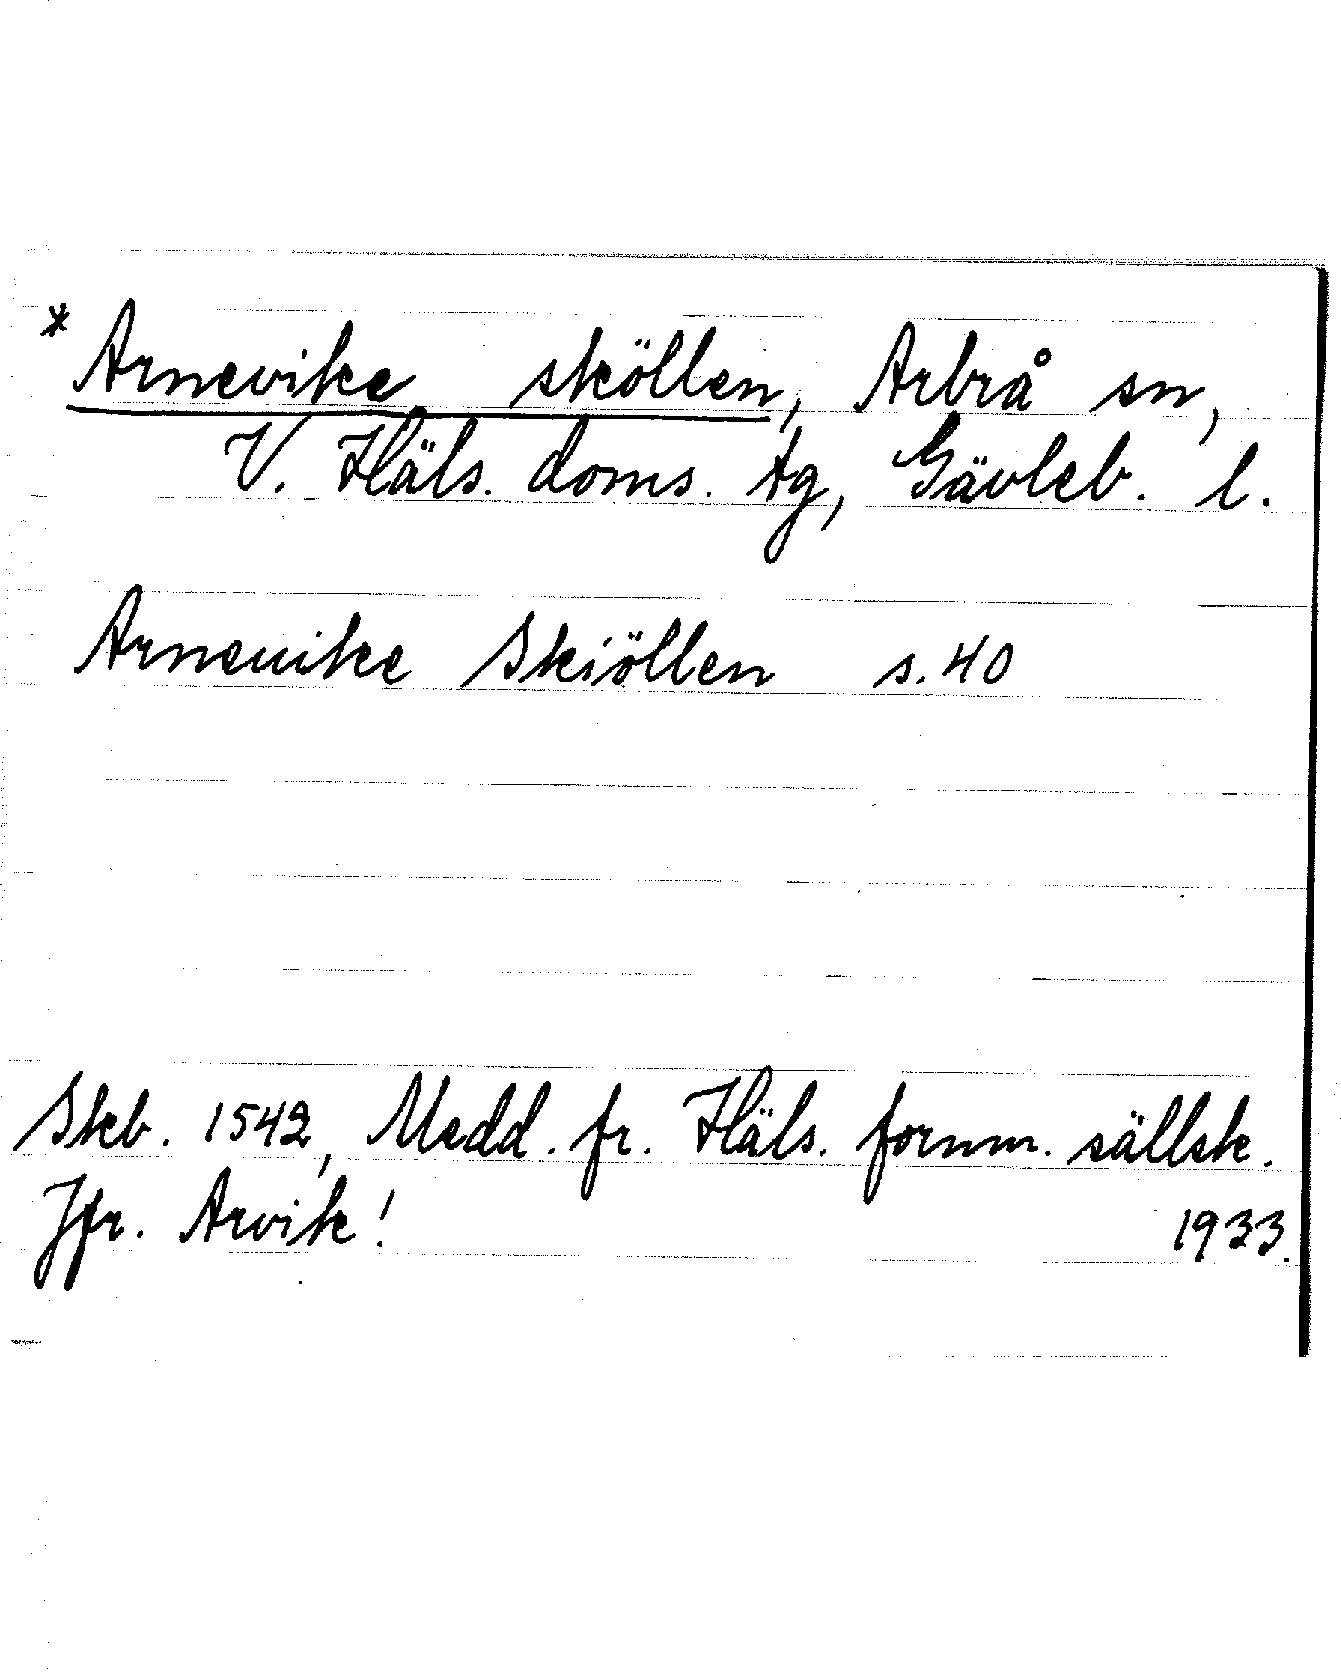 * Arnevike sköllen, Arbrå sn,
V. Häls. doms. tg, Gävleb. l.
Arneuike Skiöllen s. 40
Skb. 1542, Medd. fr. Häls. fornm. sällsk.
Jfr. Arvik! 1933.